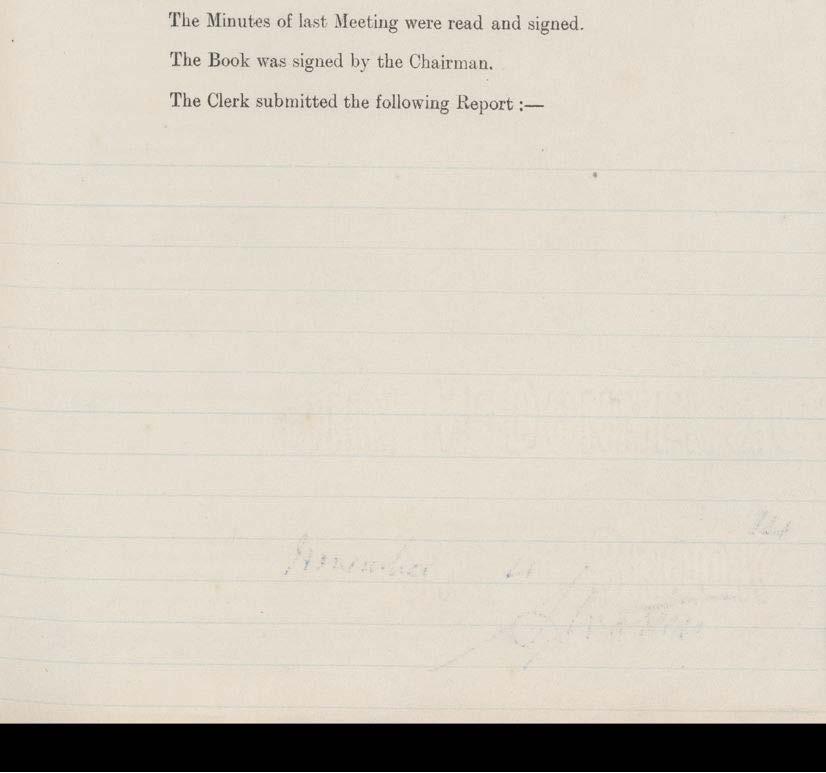 The Minutes of last Meeting were read and signed.
The Book was signed by the Chairman.
The Clerk submitted the following Report :—
November